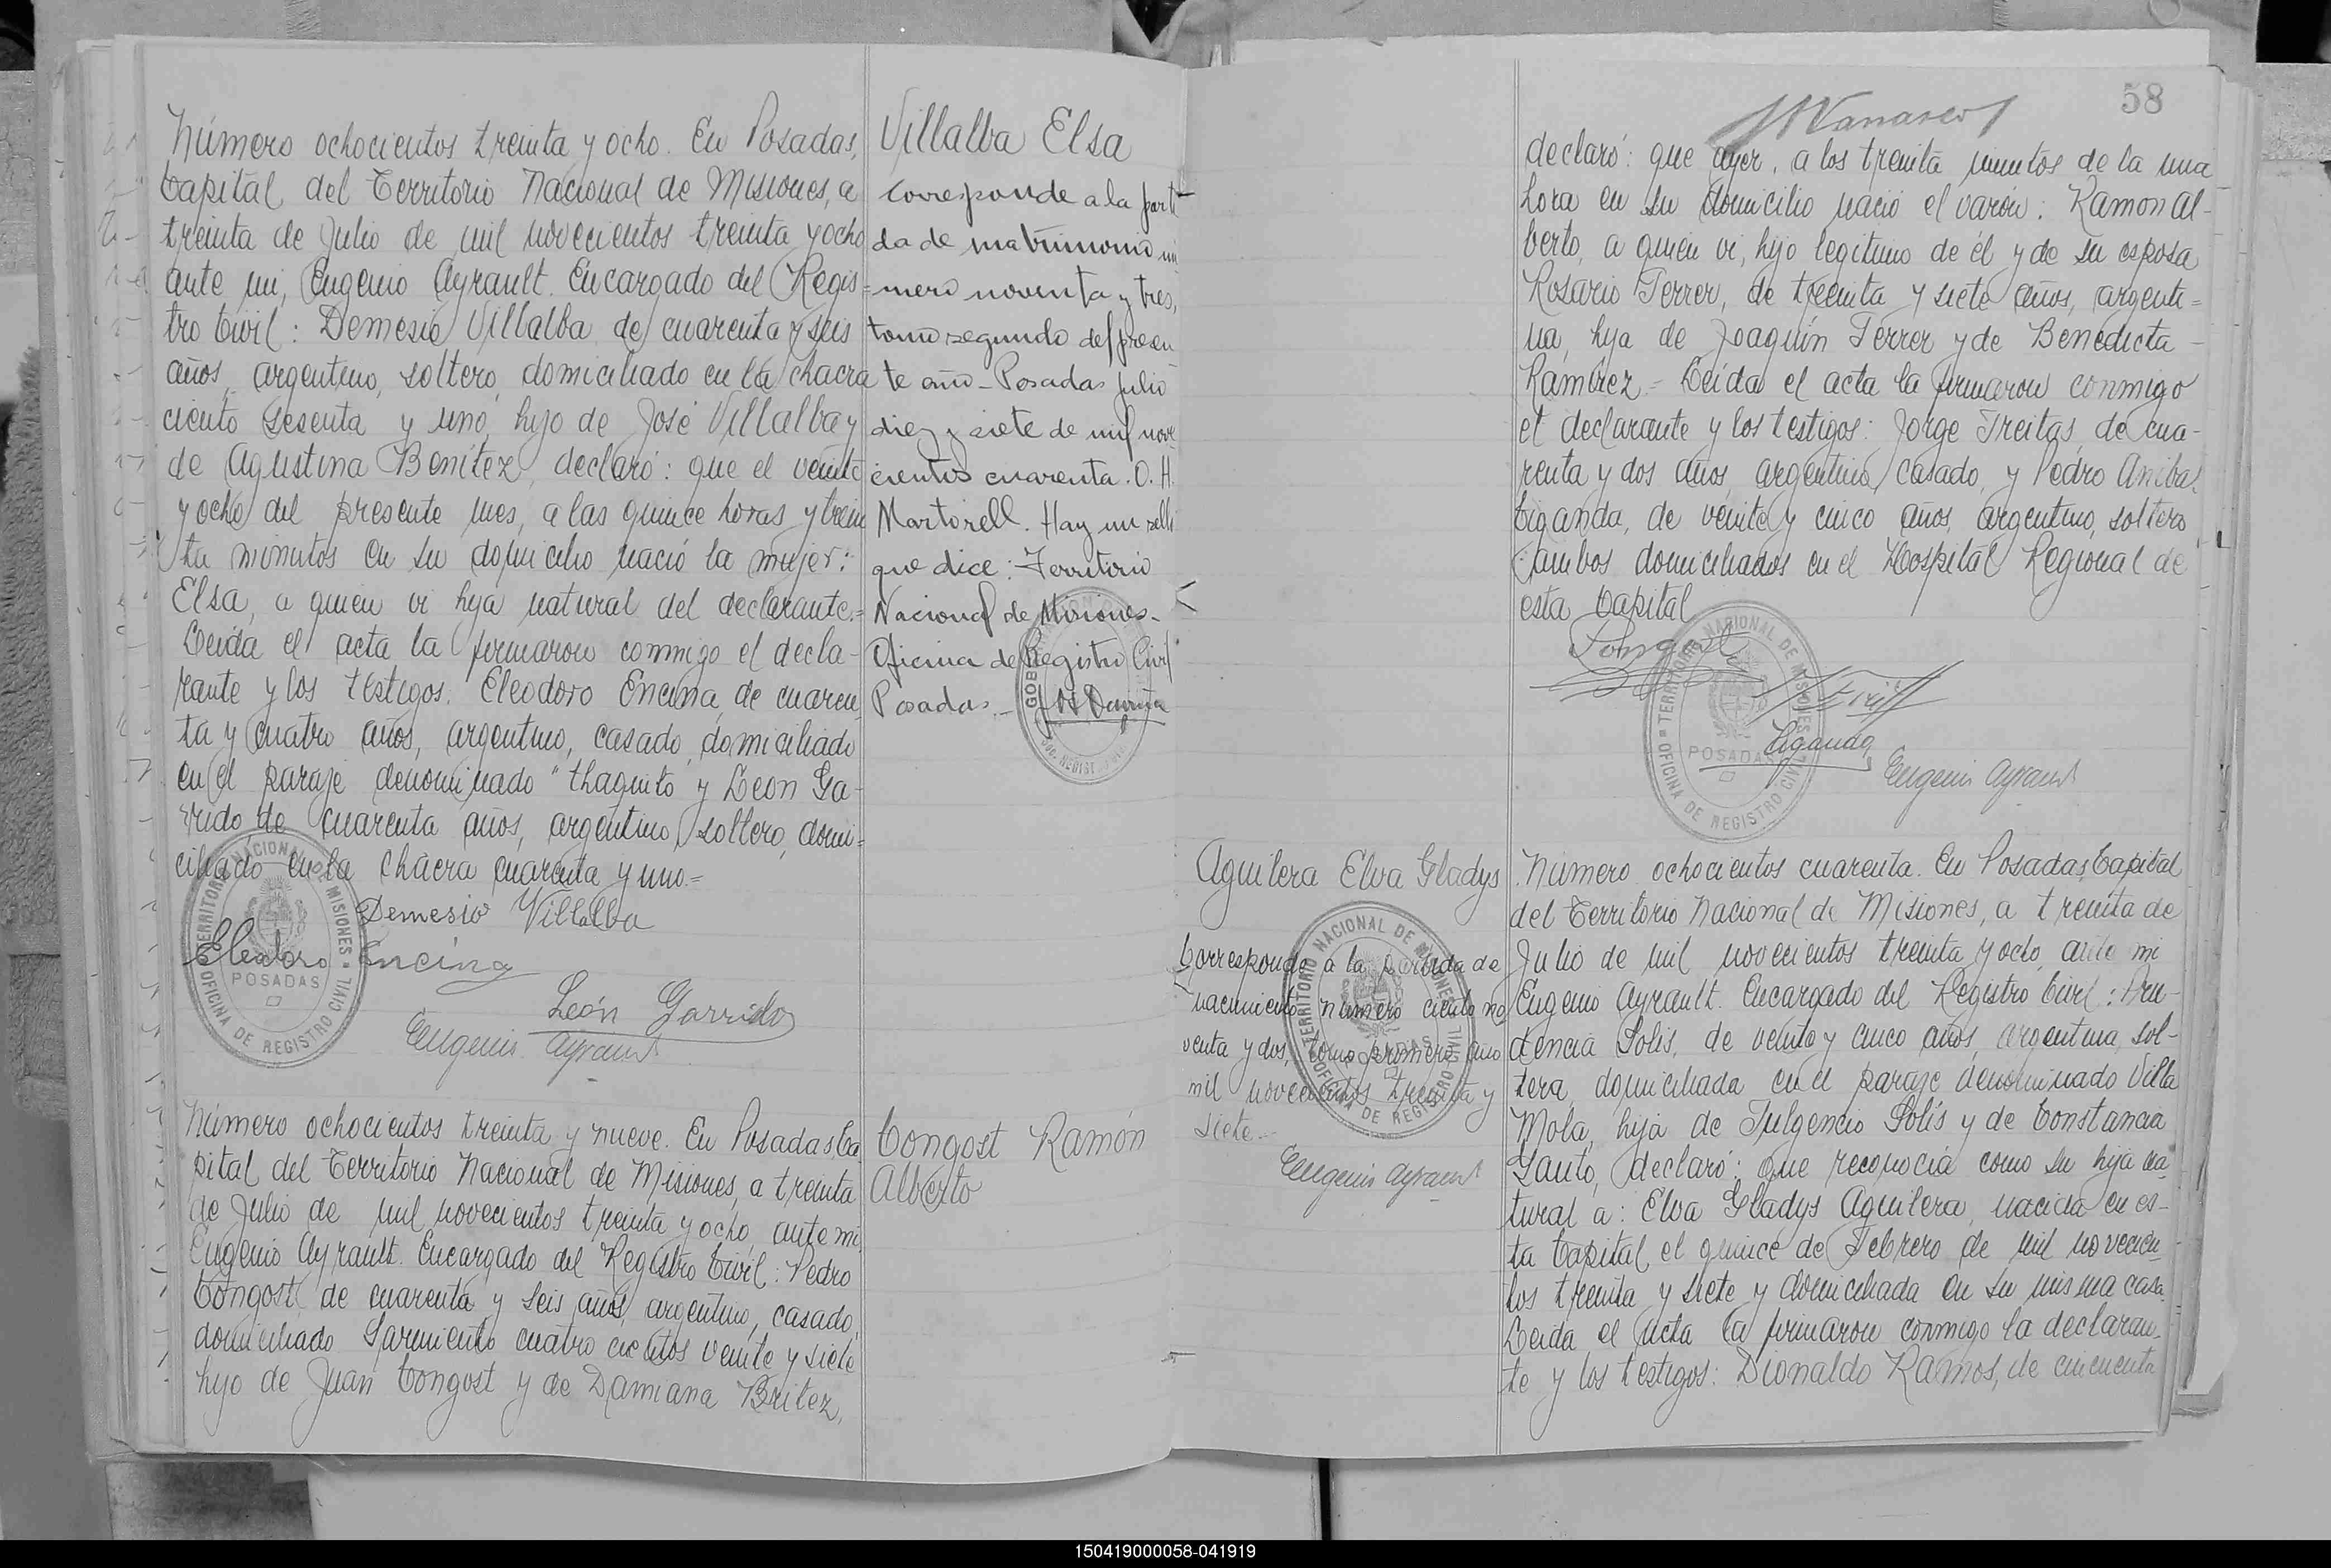 Número ochocientos treinta y ocho. En Posadas,
Capital del Territorio Nacional de Misiones, a
treinta de Julio de mil novecientos treinta y ocho
ante mi, Eugenio Ayrault. Encargado del Regis=
tro Civil: Demesio Villalba de cuarenta y seis
años, argentino, soltero, domiciliado en la chacra
ciento sesenta y uno, hijo de José Villalba y
de Agustina Benítez, declaró: que el veinte
y ocho del presente mes, a las quince horas y trein
ta minutos en su domicilio nació la mujer:
Elsa, a quien vi hija natural del declarante.=
Leída el acta la firmaron conmigo el decla-
rante y los testigos. Eleodoro Encina, de cuaren
ta y cuatro años, argentino, casado, domiciliado
en el paraje denominado "Uhaguito y León Ga-
rrido, de cuarenta años, argentino, soltero, domi=
ciliado en la chacra cuarenta y uno.=
Demesio Villalba
Eleodoro Encina
León Garrido
Eugenio Ayrault
TERRITORIO NACIONAL DE MISIONES
POSADAS
OFICINA DE REGISTRO CIVIL
Villalba Elsa
Corresponde a la parti
da de matrimonio nú
mero noventa y tres,
tomo segundo del presen
te año - Posadas Julio
diez y siete de mil nove
cientos cuarenta. O. H.
Martorell. Hay un sello
que dice: Territorio
Nacional de Misiones-
Oficina de Registro Civil
Posadas.-
Número ochocientos treinta y nueve. En Posadas, Ca
pital del Territorio Nacional de Misiones, a treinta
de Julio de mil novecientos treinta y ocho, ante mi,
Eugenio Ayrault. Encargado del Registro Civil: Pedro
Congost, de cuarenta y seis años, argentino, casado,
domiciliado Sarmiento cuatro cientos veinte y siete
hijo de Juan Congost y de Damiana Britez,
Congost Ramón
Alberto
58
declaró: que ayer, a los treinta minutos de la una
hora en su domicilio nació el varón: Ramon Al-
berto, a quien vi, hijo legitimo de él y de su esposa
Rosario Ferrer, de treinta y siete años, argenti=
na, hija de Joaquín Ferrer y de Benedicta
Ramírez - Leída el acta la firmaron conmigo
el declarante y los testigos: Jorge Freitas, de cua-
renta y dos años, argentino, casado, y Pedro Anibal
Ciganda, de veinte y cinco años, argentino, soltero
ambos domiciliados en el Hospital Regional de
esta Capital
Ciganda
Eugenio Ayrault
TERRITORIO NACIONAL DE MISIONES
POSADAS
OFICINA DE REGISTRO CIVIL
Aguilera Elva Gladys
Corresponde a la partida de
nacimiento número ciento no
venta y dos, tomo primero, año
mil novecientos treinta y
siete.-
Eugenio Ayrault
TERRITORIO NACIONAL DE MISIONES
POSADAS
OFICINA DE REGISTRO CIVIL
Número ochocientos cuarenta. En Posadas, Capital
del Territorio Nacional de Misiones, a treinta de
Julio de mil novecientos treinta y ocho, ante mi
Eugenio Ayrault. Encargado del Registro Civil: Pru-
dencia Solis, de veinte y cinco años, argentina, sol-
tera, domiciliada en el paraje denominado Villa
Mola, hija de Fulgencio Solís y de Constancia
Santo, declaró: que reconocía como su hija na-
tural a: Elva Gladys Aguilera, nacida en es-
ta Capital, el quince de Febrero de mil novecien
tos treinta y siete y domiciliada en su misma casa.
Leída el acta la firmaron conmigo la declaran-
te y los testigos: Dionaldo Ramos, de cincuenta
150419000058-041919